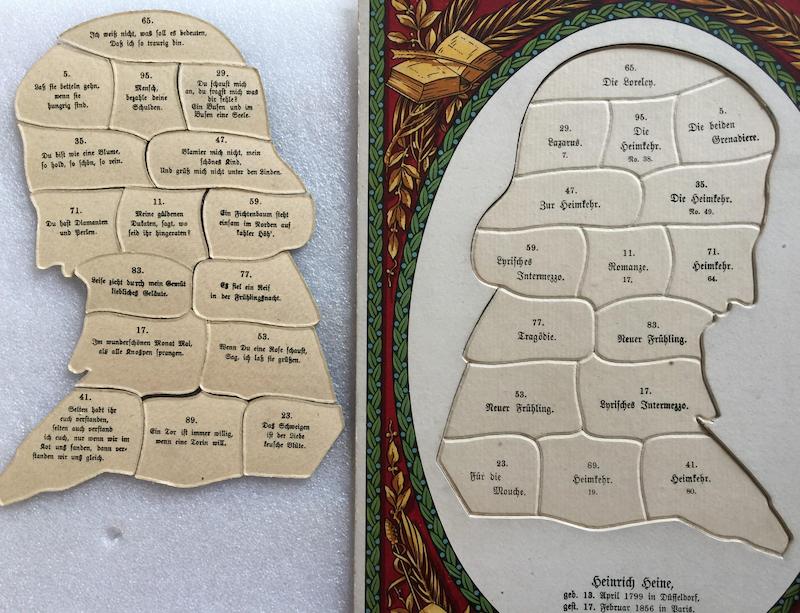 65.
Ich weiß nicht, was soll es bedeuten,
Daß ich so traurig bin.
5.
Laß sie betteln gehn,
wenn sie
hungrig sind.
95.
Mensch,
bezahle deine
Schulden.
29.
Du schaust mich
an, du fragst mich was
dir fehle?
Ein Busen und im
Busen eine Seele.
35.
Du bist wie eine Blume,
so hold, so schön, so rein.
47.
Blamier mich nicht, mein
schönes Kind,
Und grüß mich nicht unter den Linden.
71.
Du hast Diamanten
und Perlen.
11.
Meine güldenen
Dukaten, sagt, wo
seid ihr hingeraten?
59.
Ein Fichtenbaum steht
einsam im Norden auf
kahler Höh'.
83.
Leise zieht durch mein Gemüt
liebliches Geläute.
77.
Es fiel ein Reif
in der Frühlingsnacht.
17.
Im wunderschönen Monat Mai,
als alle Knospen sprangen.
53.
Wenn Du eine Rose schaust,
Sag, ich laß sie grüßen.
41.
Selten habt ihr
euch verstanden,
selten auch verstand
ich euch, nur wenn wir im
Kot uns fanden, dann ver-
standen wir uns gleich.
89.
Ein Tor ist immer willig,
wenn eine Törin will.
23.
Das Schweigen
ist der Liebe
keusche Blüte.
65.
Die Loreley.
29.
Lazarus.
7.
95.
Die
Heimkehr.
No. 38.
5.
Die beiden
Grenadiere.
47.
Zur Heimkehr.
35.
Die Heimkehr.
No. 49.
59.
Lyrisches
Intermezzo.
11.
Romanze.
17.
71.
Heimkehr.
64.
77.
Tragödie.
83.
Neuer Frühling.
53.
Neuer Frühling.
17.
Lyrisches Intermezzo.
23.
Für die
Mouche.
89.
Heimkehr.
19.
41.
Heimkehr.
80.
Heinrich Heine,
geb. 13. April 1799 in Düsseldorf,
gest. 17. Februar 1856 in Paris.